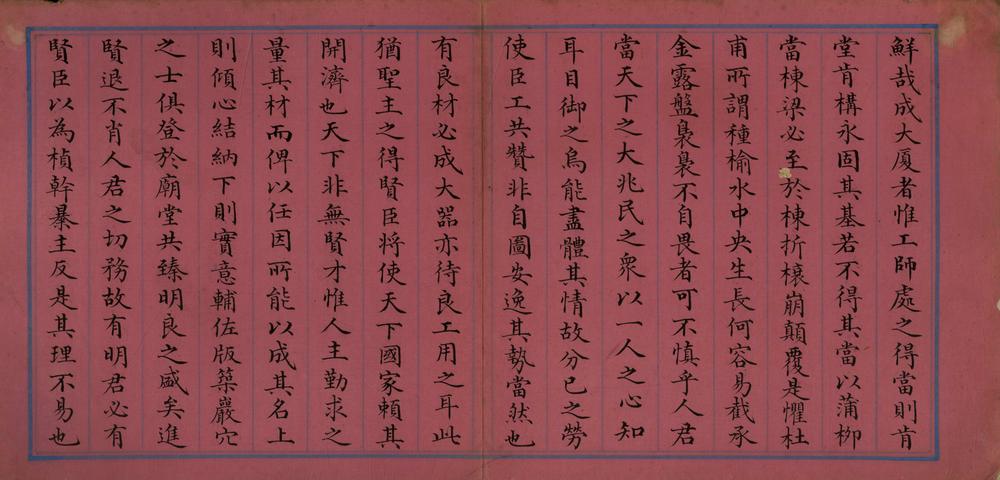 鮮哉成大厦者惟工師處之得當則肯
堂肯構永固其基若不得其當以蒲柳
當棟梁必至於棟折榱崩顛覆是懼杜
甫所謂種榆水中央生長何容易截承
金露盤裊裊不自畏者可不慎乎人君
當天下之大兆民之衆以一人之心知
耳目御之烏能盡體其情故分已之勞
使臣工共贊非自圖安逸其勢當然也
有良材必成大器亦待良工用之耳此
猶聖主之得賢臣将使天下國家頼其
開濟也天下非無賢才惟人主勤求之
量其材而俾以任因所能以成其名上
則傾心結納下則實意輔佐版築巖穴
之士俱登於廟堂共臻明良之盛矣進
賢退不肖人君之切務故有明君必有
賢臣以為楨幹暴主反是其理不易也